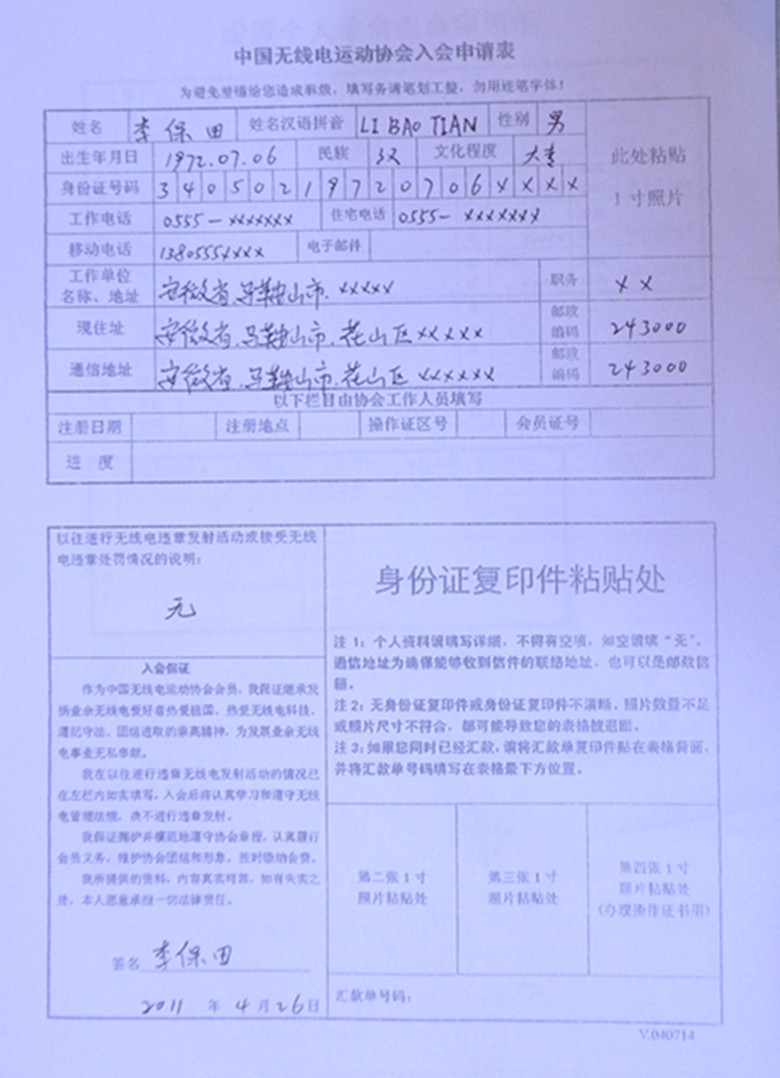 中国无线电运动协会入会申请表
为避免潦草给您造成麻烦，填写务请笔划工整，勿用连笔字体！
姓名 李保田 姓名汉语拼音 LI BAO TIAN 性别 男
出生年月日 1972.07.06 民族 汉 文化程度 大专
此处粘贴
1寸照片
身份证号码 34050219720706xxxx
工作电话 0555-xxxxxxx 住宅电话 0555-xxxxxxx
移动电话 1380555xxxx 电子邮件
工作单位
名称、地址 安徽省.马鞍山市.xxxxx 职务 xx
现住址 安徽省.马鞍山市.花山区xxxxx 邮政
编码 243000
通信地址 安徽省.马鞍山市.花山区xxxxxx 邮政
编码 243000
以下栏目由协会工作人员填写
注册日期 注册地点 操作证区号 会员证号
进 度
以往进行无线电违章发射活动或接受无线
电违章处罚情况的说明：
无
入会保证
作为中国无线电运动协会会员，我保证继承发
扬业余无线电爱好者热爱祖国、热爱无线电科技、
遵纪守法、团结进取的崇高精神，为发展业余无线
电事业无私奉献。
我在以往进行违章无线电发射活动的情况已
在左栏内如实填写，入会后将认真学习和遵守无线
电管理法规，决不进行违章发射。
我保证拥护并模范地遵守协会章程，认真履行
会员义务，维护协会团结和形象，按时缴纳会费。
我所提供的资料，内容真实可靠，如有失实之
处，本人愿意承担一切法律责任。
签名 李保田
2011 年 4 月 26 日
身份证复印件粘贴处
注1：个人资料请填写详细，不得有空项，如空请填“无”。
通信地址为确保能够收到信件的联络地址，也可以是邮政信
箱。
注2：无身份证复印件或身份证复印件不清晰、照片数量不足
或照片尺寸不符合，都可能导致您的表格被退回。
注3：如果您同时已经汇款，请将汇款单复印件贴在表格背面，
并将汇款单号码填写在表格最下方位置。
第二张1寸
照片粘贴处
第三张1寸
照片粘贴处
第四张1寸
照片粘贴处
(办理操作证书用)
汇款单号码：
V.040714